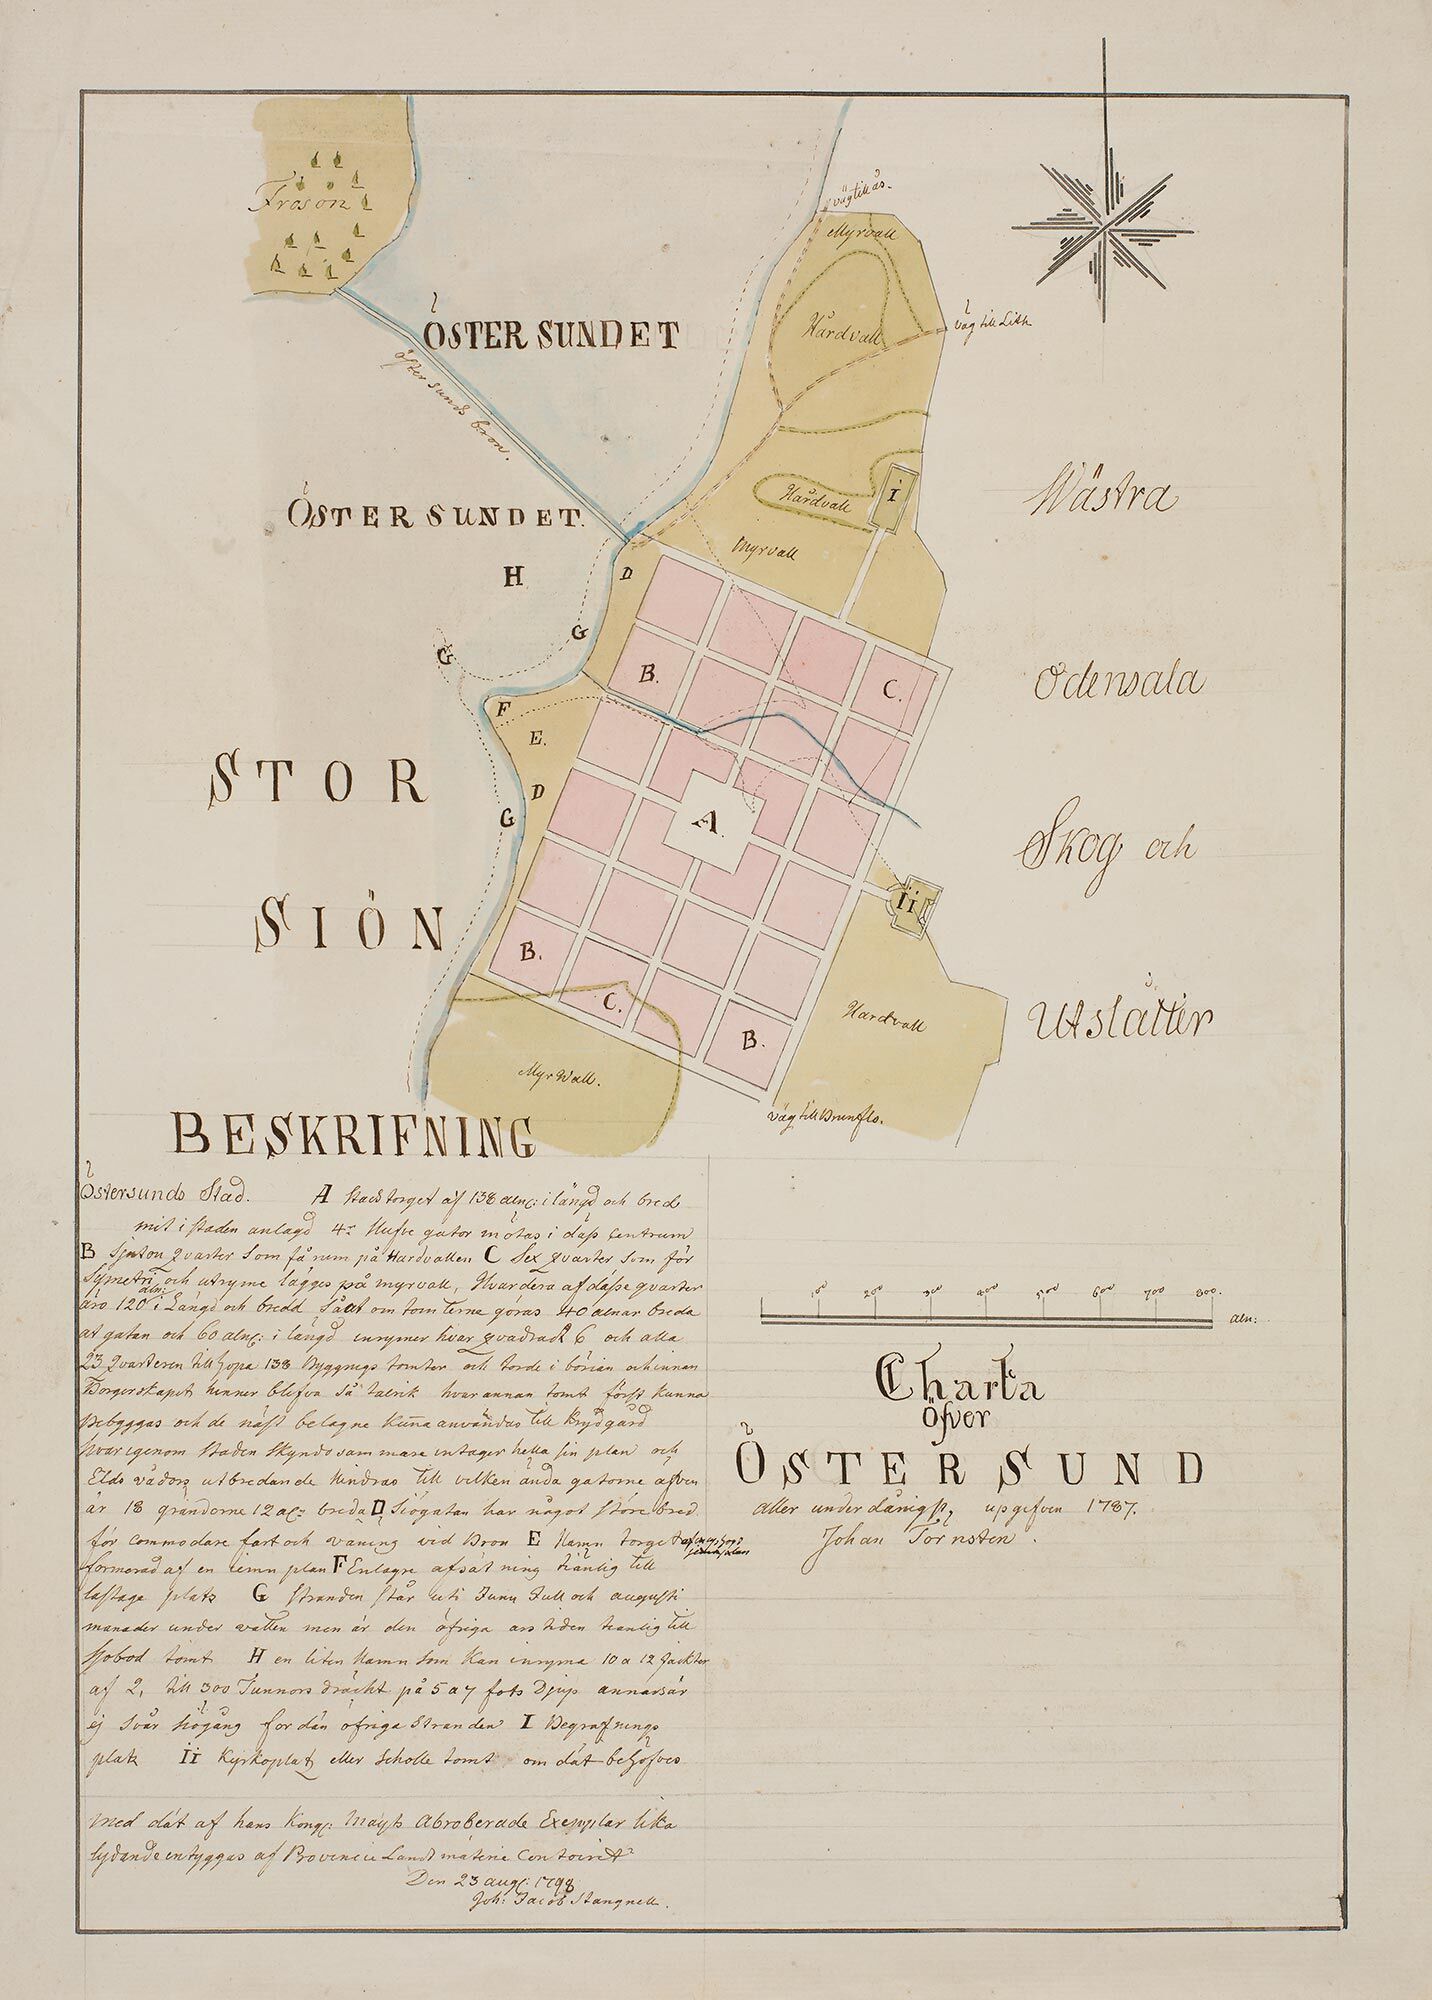 Frösön
väg till ås.
Myrvall
Hårdvall
väg till Lith
ÖSTER SUNDET
öster sunds bron.
ÖSTER SUNDET.
Hårdvall
I
Myrvall
H
D
G
G
B.
C.
F
E.
D
A.
G
Ii
B.
C.
B.
Hardvall
MyrWall.
väg till Brunflo.
STOR
SIÖN
Wästra
Odensala
Skog och
Utslåtter
BESKRIFNING
Östersunds Stad. A Stads torget af 138 aln: i längd och bred
mit i staden anlagd 4r Hufvu gator mötas i dess centrum
B Sjutton qvarter som få rum på Hardvallen C Sex qvarter som för
Symetri och utryme lägges på myrvall, Hvardera af dässe qvarter
äro 120 aln: i Längd och bredd Så at om tomterne göras 40 alnar breda
at gatan och 60 aln: i längd inrymer hvar qvadrat 6 och alla
23 qvarteren till hopa 138 Byggnigs tomter och torde i börian och innan
Borgerskapet hinner blifva så talrik hvar annan tomt först kunna
bebyggas och de näst belägne kuna användas till Krydgård
hvar igenom staden skyndsammare intager hella sin plan och
Elds vådors utbredande hindras till vilken ända gatorne äfven
är 18 gränderne 12 al: breda D Siögatan har något större bred
för commodare fart och väning vid Bron E Hamn torget
formerad af en iemn plan F En lägre afsätning tiänlig till
lastage plats G Stranden står uti Juni Juli och augusti
månader under vatten men är den öfriga års tiden tianlig till
sjobod tomt H en liten Hamn som kan inryma 10 a 12 jackter
af 2, till 300 Tunnors drächt på 5 a 7 fots Djup annars är
ej svår siögång for dän öfriga stranden I Begrafnings
plats Ii Kyrkoplats eller Scholle tomt om dåt behöfves
med dät af hans Kongl: Mayts Abroberade Exemplar lika
lydande intyggas af Provincie Landtmäterie Contoiret
Den 23 aug: 1798
Joh: Jacob Stangnell.
100 200 300 400 500 600 700 800. aln:
Charta
Öfver
ÖSTERSUND
aller underdånigst, upgifven 1787.
Johan Törnsten.